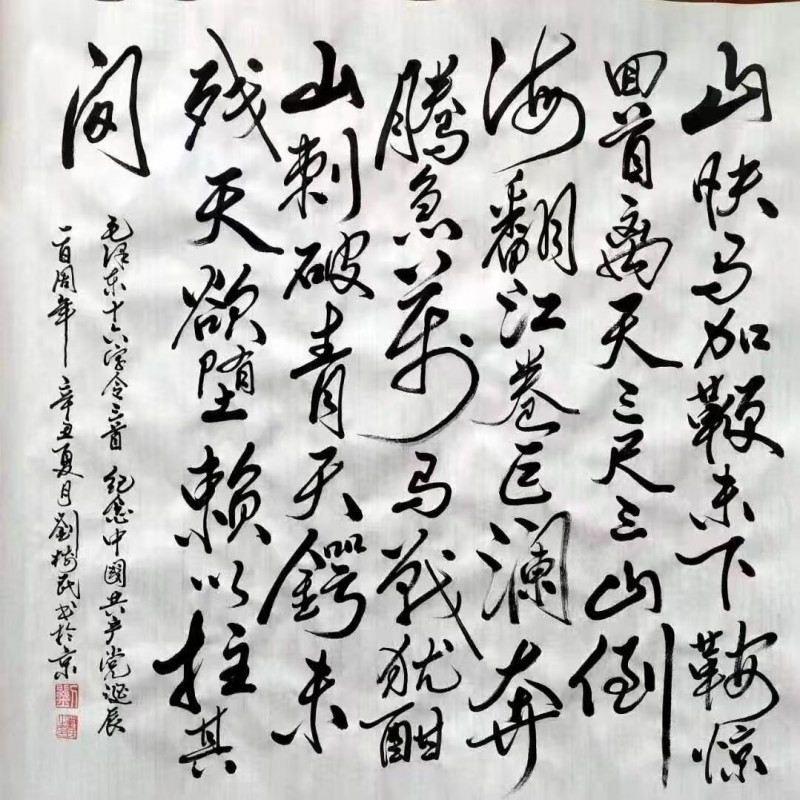 山快马加鞭未下鞍惊
回首离天三尺三山倒
海翻江卷巨澜奔
腾急萬马戰犹酣
山刺破青天锷未
残天欲堕赖以拄其
间
毛泽东十六字令三首 纪念中國共产党诞辰
一百周年 辛丑夏月劉樹民书於京